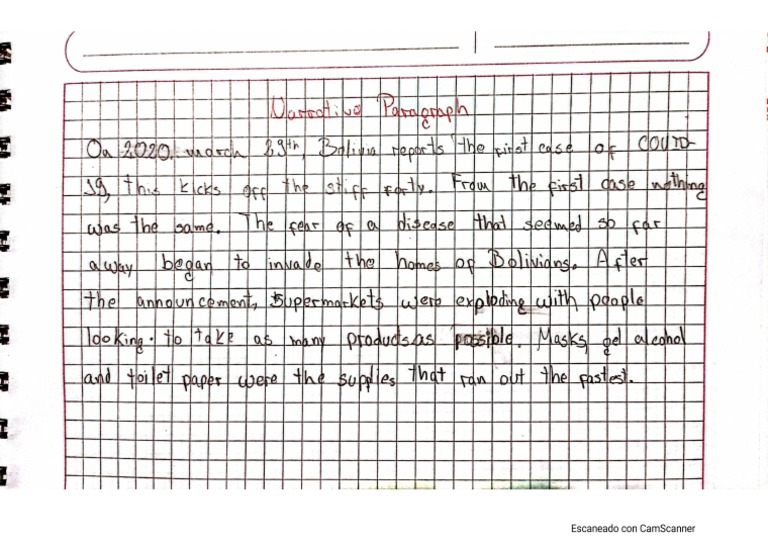 Narrative Paragraph
On 2020, march 29th, Bolivia reports the first case of COVID-
19, this kicks off the stiff forty. From the first case nothing
was the same. The fear of a disease that seemed so far
away began to invade the homes of Bolivians. After
the announcement, supermarkets were exploding with people
looking to take as many products as possible. Masks, gel alcohol
and toilet paper were the supplies that ran out the fastest.
Escaneado con CamScanner